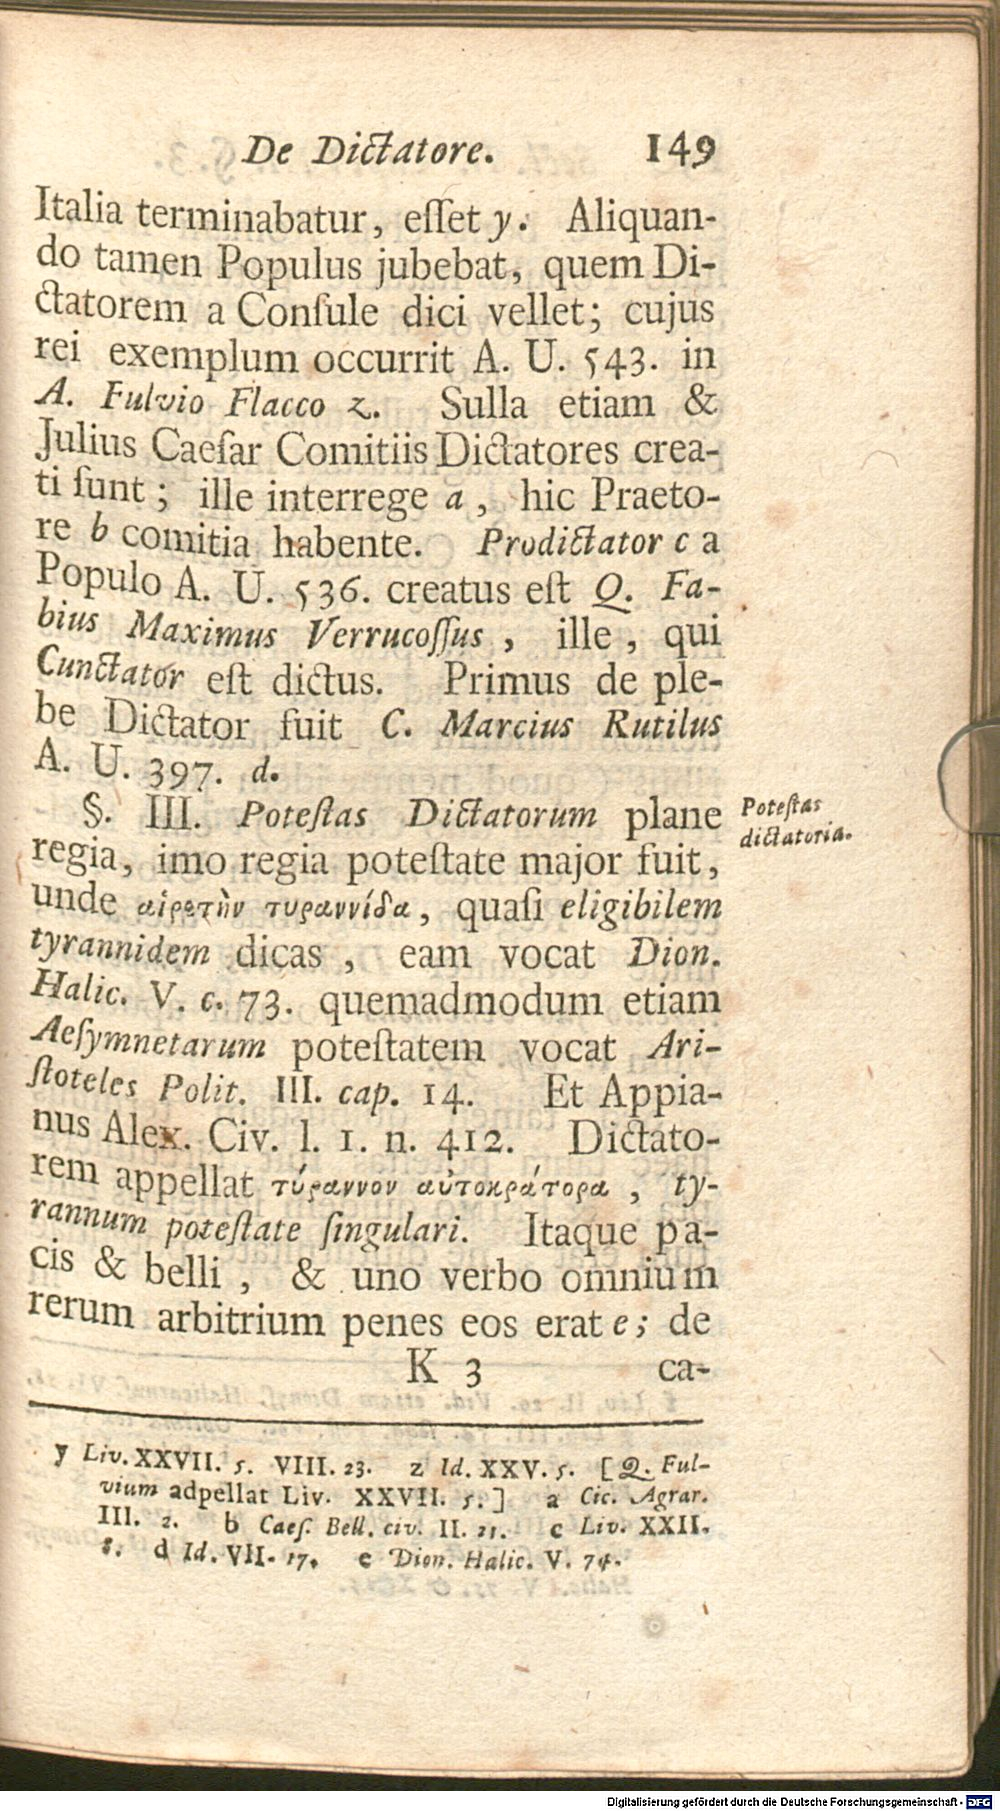 De Dictatore. 149
Italia terminabatur, eſſet y. Aliquan-
do tamen Populus jubebat, quem Di-
ctatorem a Conſule dici vellet; cujus
rei exemplum occurrit A. U. 543. in
A. Fulvio Flacco z. Sulla etiam &
Julius Caeſar Comitiis Dictatores crea-
ti ſunt; ille interrege a, hic Praeto-
re b comitia habente. Prodictator c a
Populo A. U. 536. creatus eſt Q. Fa-
bius Maximus Verrucoſſus, ille, qui
Cunctator eſt dictus. Primus de ple-
be Dictator fuit C. Marcius Rutilus
A. U. 397. d.
§. III. Poteſtas Dictatorum plane
Poteſtas
dictatoria.
regia, imo regia poteſtate major fuit,
unde αἱρετὴν τυραννίδα, quaſi eligibilem
tyrannidem dicas, eam vocat Dion.
Halic. V. c. 73. quemadmodum etiam
Aeſymnetarum poteſtatem vocat Ari-
ſtoteles Polit. III. cap. 14. Et Appia-
nus Alex. Civ. l. 1. n. 412. Dictato-
rem appellat τύραννον αὐτοκράτορα, ty-
rannum poteſtate ſingulari. Itaque pa-
cis & belli, & uno verbo omnium
rerum arbitrium penes eos erat e; de
K 3 ca-
y Liv. XXVII. 5. VIII. 23. z Id. XXV. 5. [Q. Ful-
vium adpellat Liv. XXVII. 5.] a Cic. Agrar.
III. 2. b Caeſ. Bell. civ. II. 21. c Liv. XXII.
8. d Id. VII. 17. e Dion. Halic. V. 74.
Digitalisierung gefördert durch die Deutsche Forschungsgemeinschaft - DFG